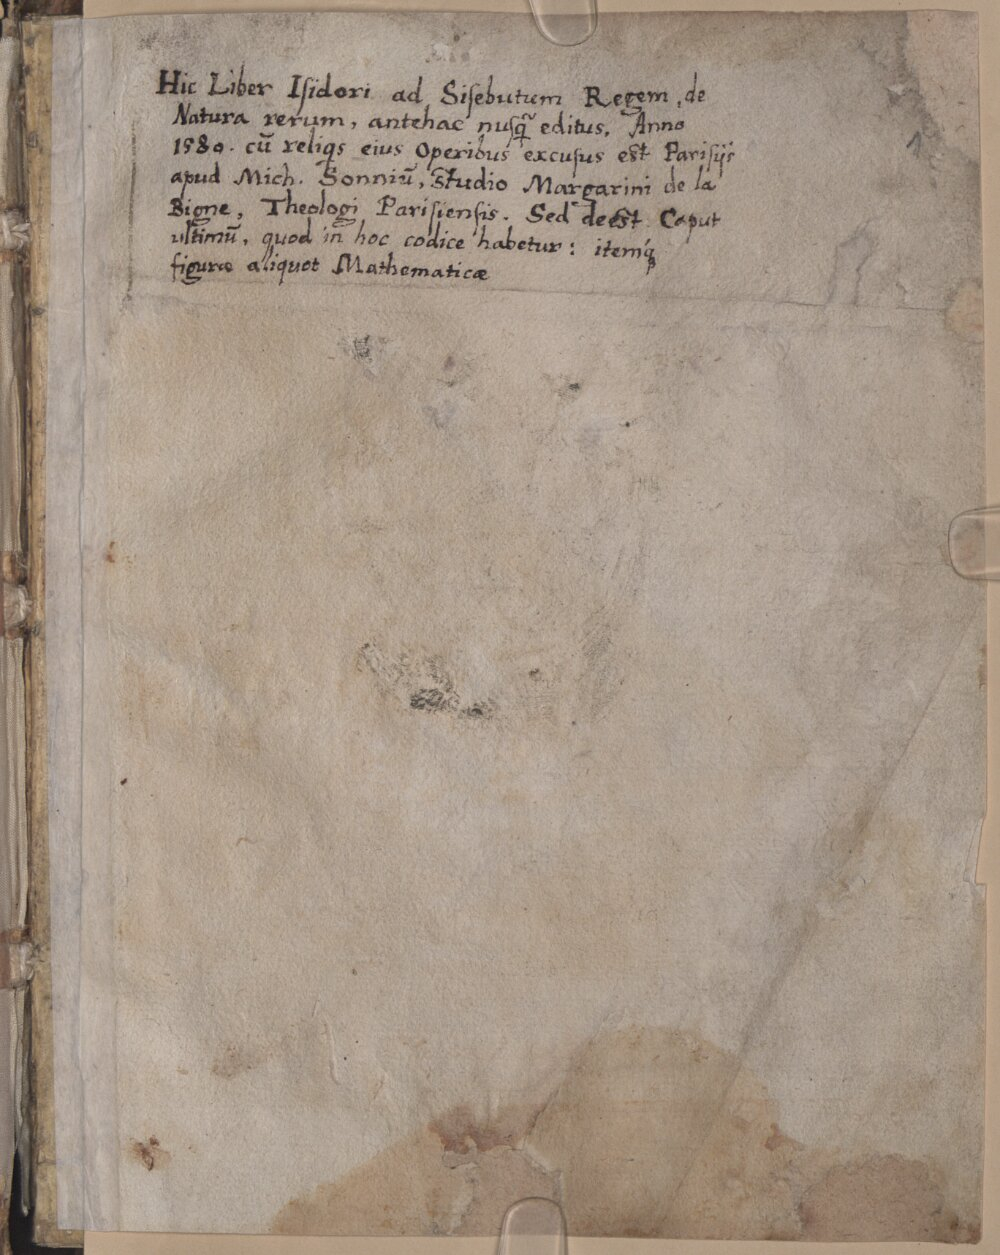 Hic Liber Iſidori ad Siſebutum Regem, de
Natura rerum, antehac nuſq̃ editus, Anno
1580. cũ reliqs eius Operibus excuſus est Pariſijs
apud Mich. Sonniũ, Studio Margarini de la
Bigne, Theologi Pariſienſis. Sed deest Caput
ultimũ, quod in hoc codice habetur: itemq́
figuræ aliquot Mathematicæ
1